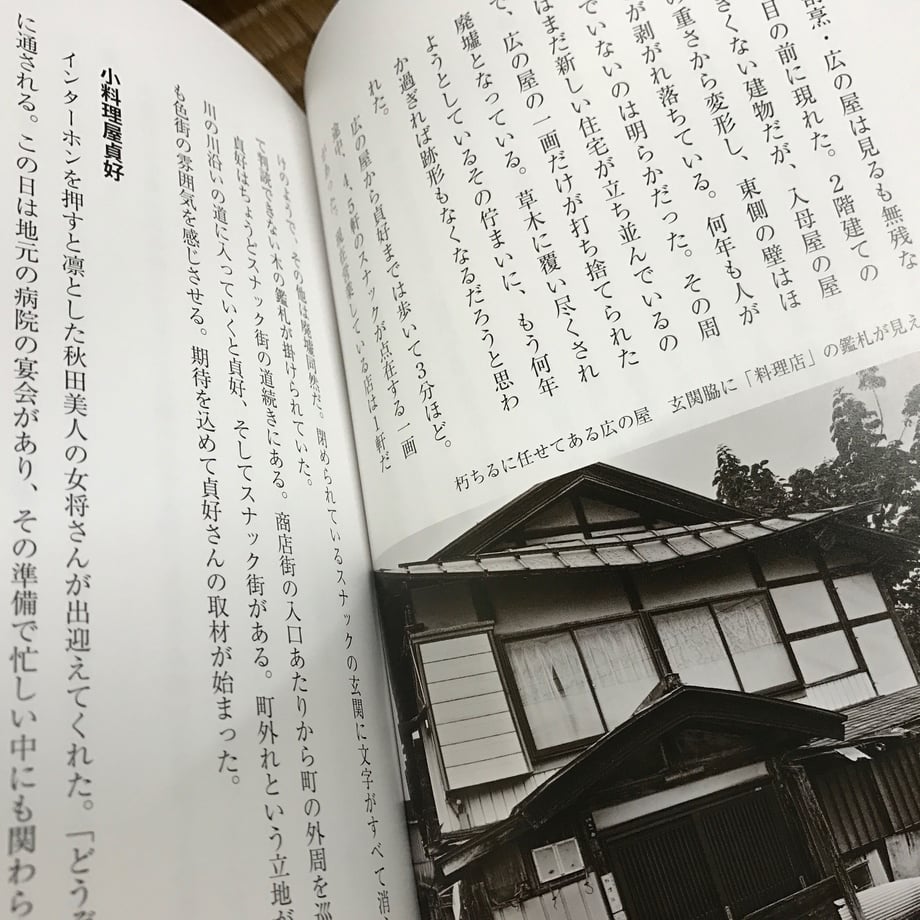 割烹・広の屋は見るも無残な
目の前に現れた。2階建ての
きくない建物だが、入母屋の屋
の重さから変形し、東側の壁はほ
が剥がれ落ちている。何年も人が
でいないのは明らかだった。その周
はまだ新しい住宅が立ち並んでいるの
で、広の屋の一画だけが打ち捨てられた
廃墟となっている。草木に覆い尽くされ
ようとしているその佇まいに、もう何年
か過ぎれば跡形もなくなるだろうと思わ
れた。
広の屋から貞好までは歩いて3分ほど。
途中、4、5軒のスナックが点在する一画
があった。現在営業している店は1軒だ
けのようで、その他は廃墟同然だ。閉められているスナックの玄関に文字がすべて消
て判読できない木の鑑札が掛けられていた。
貞好はちょうどスナック街の道続きにある。商店街の入口あたりから町の外周を巡
川の川沿いの道に入っていくと貞好、そしてスナック街がある。町外れという立地が
も色街の雰囲気を感じさせる。期待を込めて貞好さんの取材が始まった。
小料理屋貞好
インターホンを押すと凛とした秋田美人の女将さんが出迎えてくれた。「どうぞ
に通される。この日は地元の病院の宴会があり、その準備で忙しい中にも関わら
朽ちるに任せてある広の屋　玄関脇に「料理店」の鑑札が見え